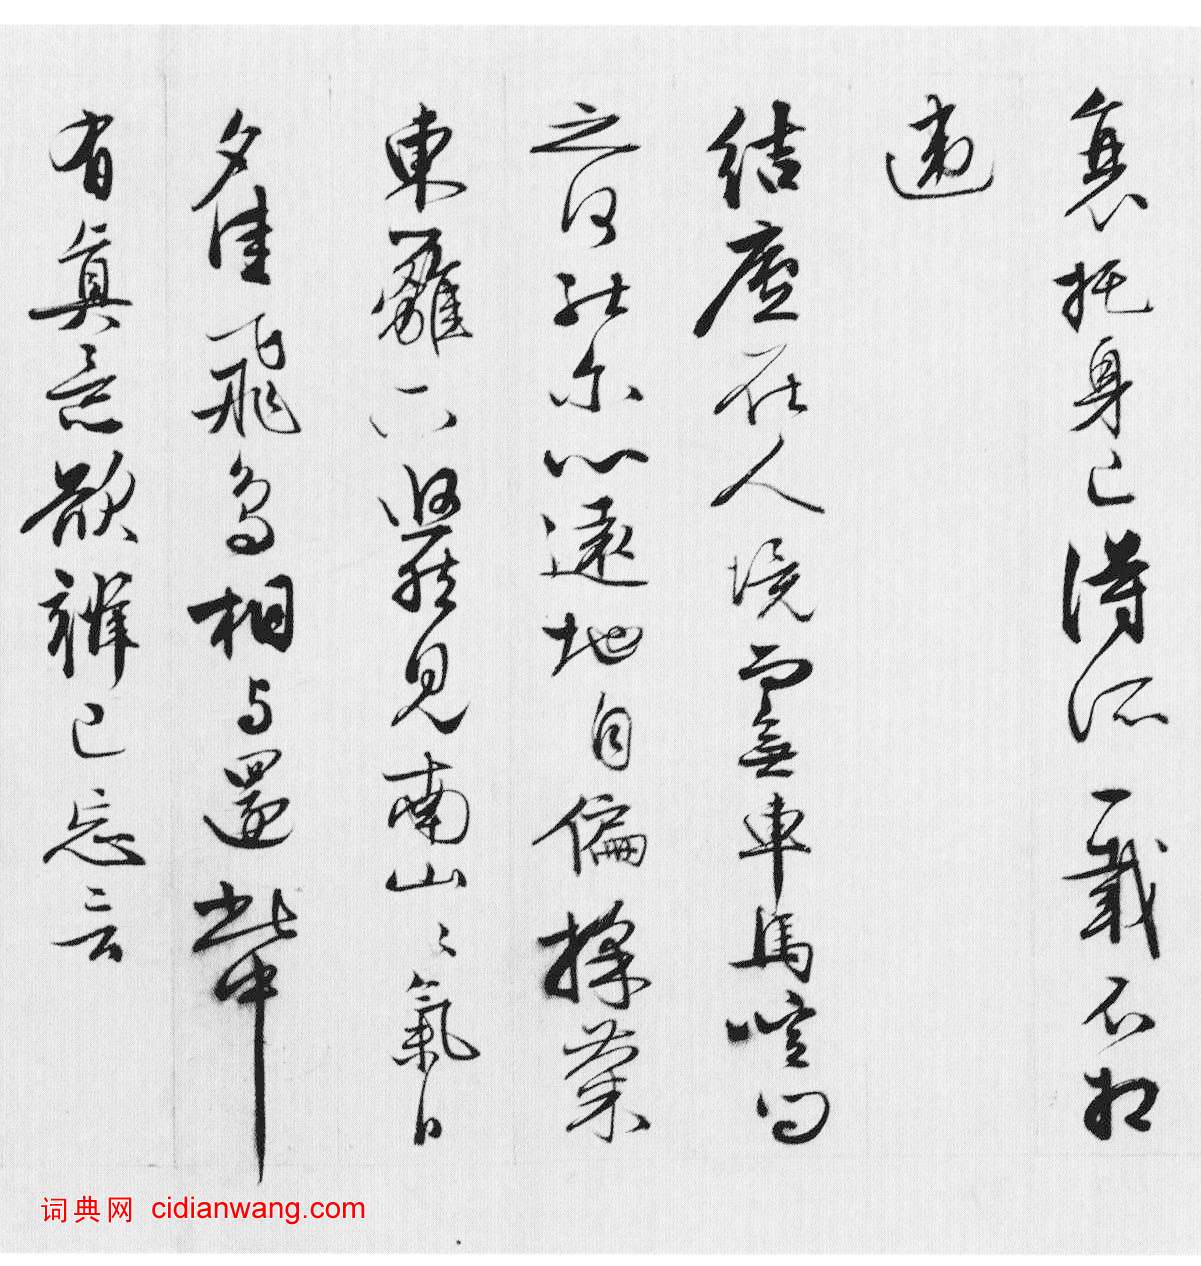 衰托身已得所千載不相
違
結廬在人境而無車馬喧問
之何能尔心遠地自偏採菊
東籬下悠然見南山〻氣日
夕佳飛鳥相与還此中
有真意欲辨已忘言
词典网 cidianwang.com